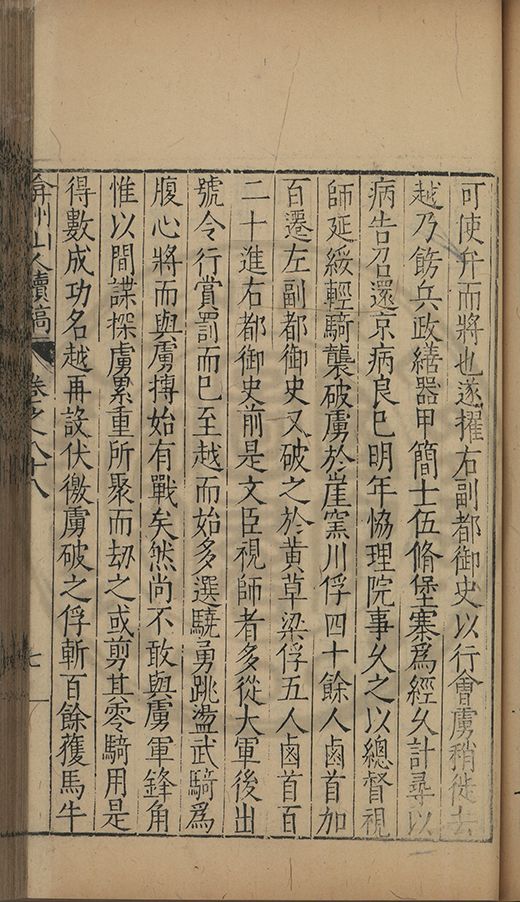 可使弁而將也遂擢右副都御史以行會虜稍徙去
越乃飭兵政繕器甲簡士伍脩堡寨爲經久計尋以
病告召還京病良巳明年恊理院事久之以總督視
師延綏輕騎襲破虜於崖窯川俘四十餘人鹵首加
百遷左副都御史又破之於黄草梁俘五人鹵首百
二十進右都御史前是文臣視師者多從大軍後出
號令行賞罰而巳至越而始多選驍勇跳盪武騎爲
腹心將而與虜搏始有戰矣然尚不敢與虜軍鋒角
惟以間諜探虜累重所聚而刼之或剪其零騎用是
得數成功名越再設伏徼虜破之俘斬百餘獲馬牛
弇州山人續稿 卷之八十八 七